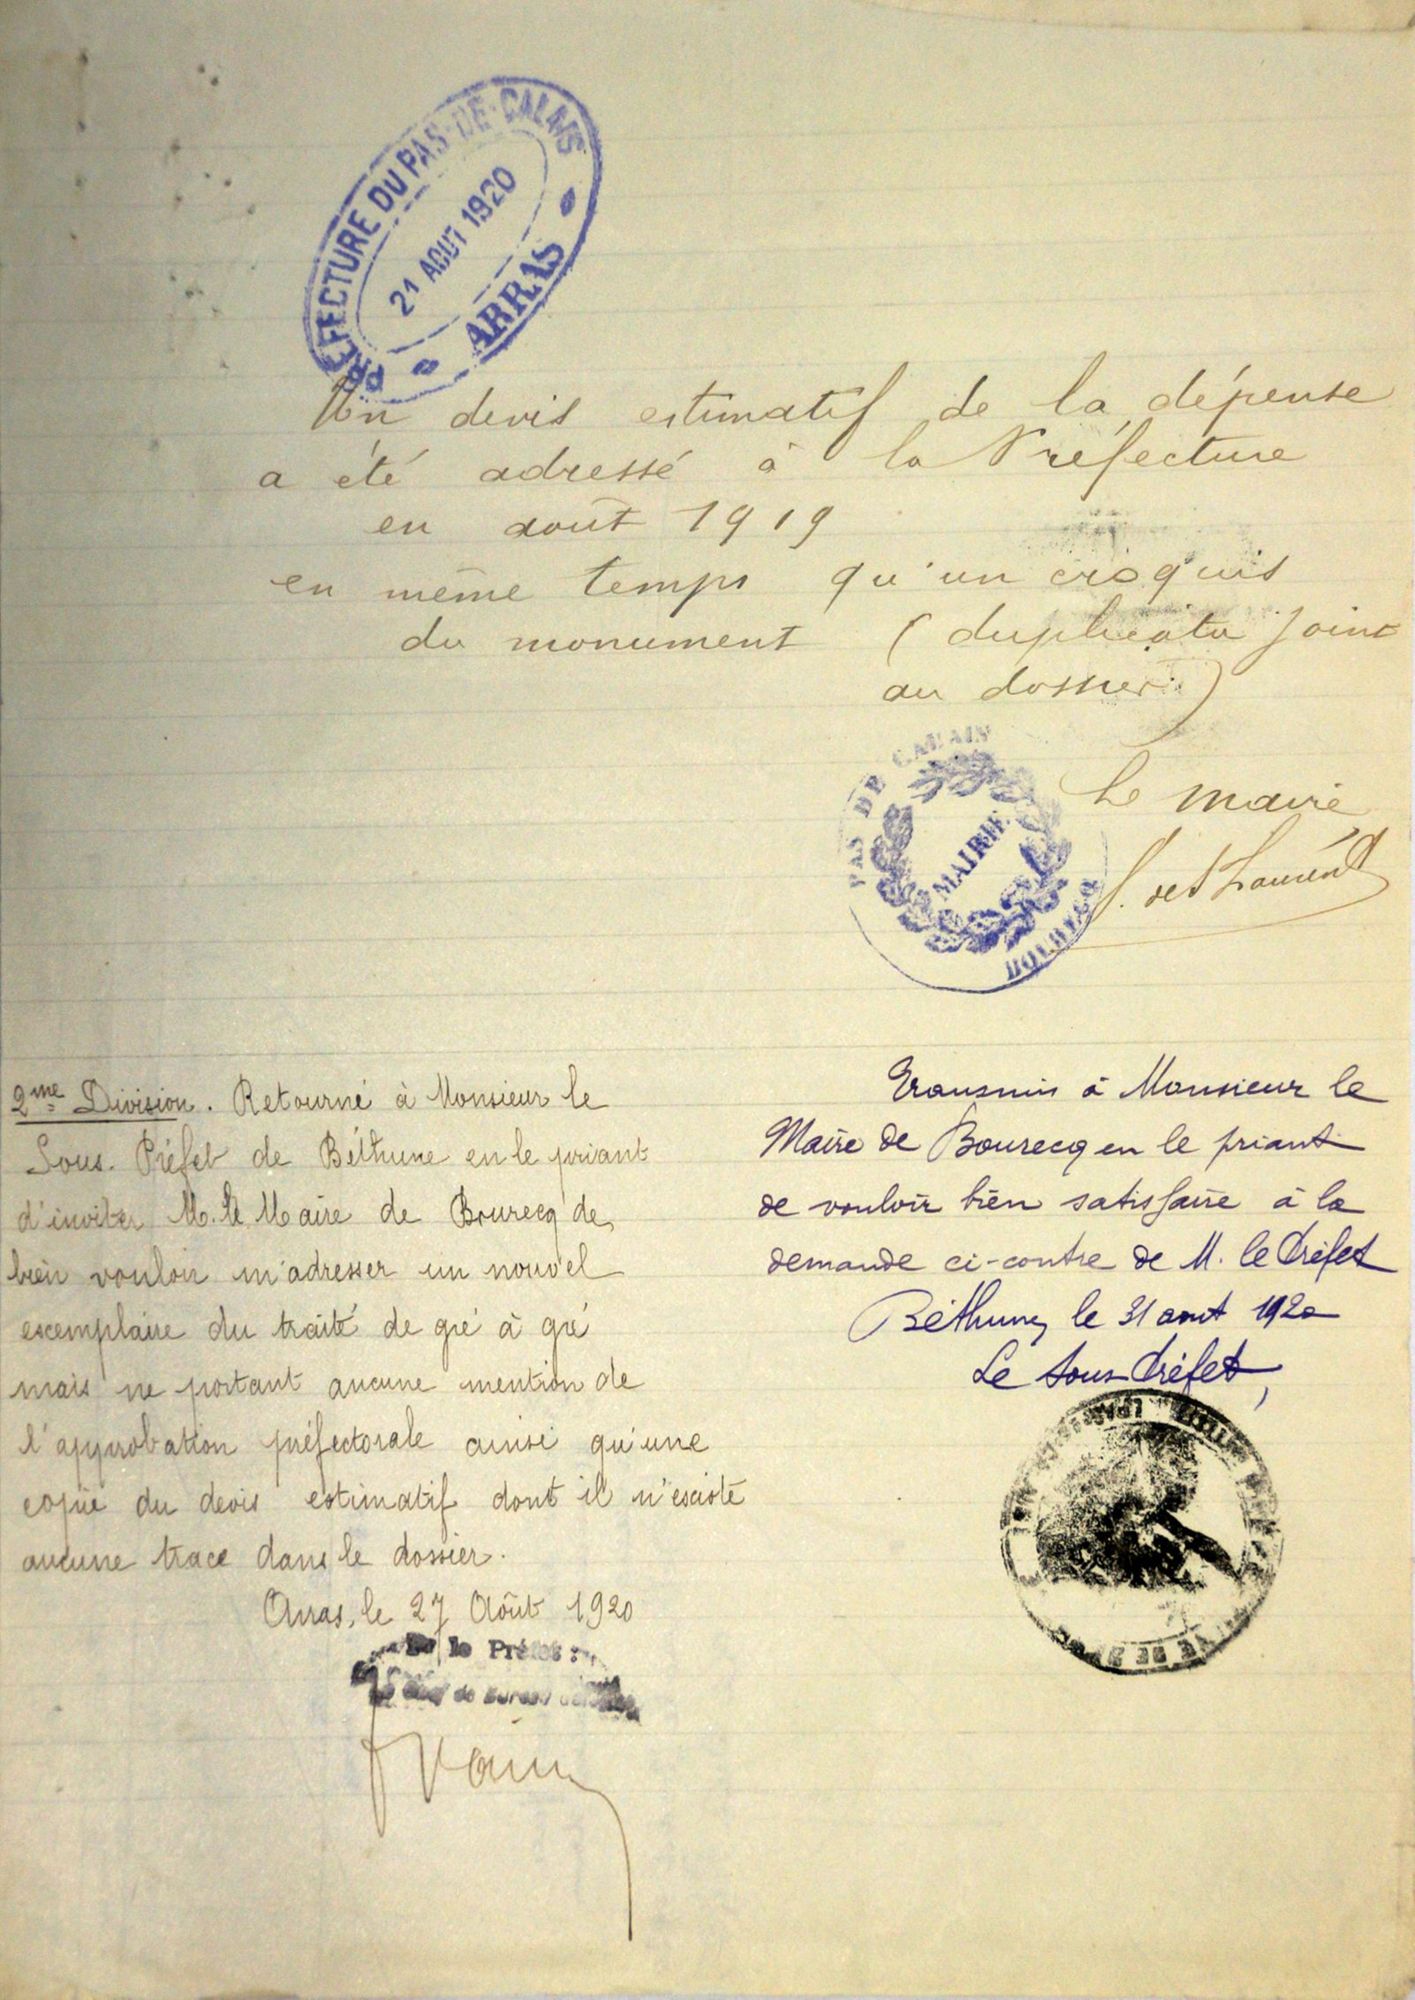 PREFECTURE DU PAS-DE-CALAIS
21 AOUT 1920
ARRAS
Un devis estimatif de la dépense
a été adressé à la Préfecture
en août 1919
en même temps qu'un croquis
du monument (duplicata joint
au dossier)
Le Maire
PAS DE CALAIS
MAIRIE
BOURECQ
2me Division. Retourné à Monsieur le
Sous-Préfet de Béthune en le priant
d'inviter M. le Maire de Bourecq de
bien vouloir m'adresser un nouvel
exemplaire du traité de gré à gré
mais ne portant aucune mention de
l'approbation préfectorale ainsi qu'une
copie du devis estimatif dont il n'existe
aucune trace dans le dossier.
Arras, le 27 Août 1920
le Préfet :
de Bureau
Transmis à Monsieur le
Maire de Bourecq en le priant
de vouloir bien satisfaire à la
demande ci-contre de M. le Préfet
Béthune, le 31 aout 1920
Le Sous-Préfet,